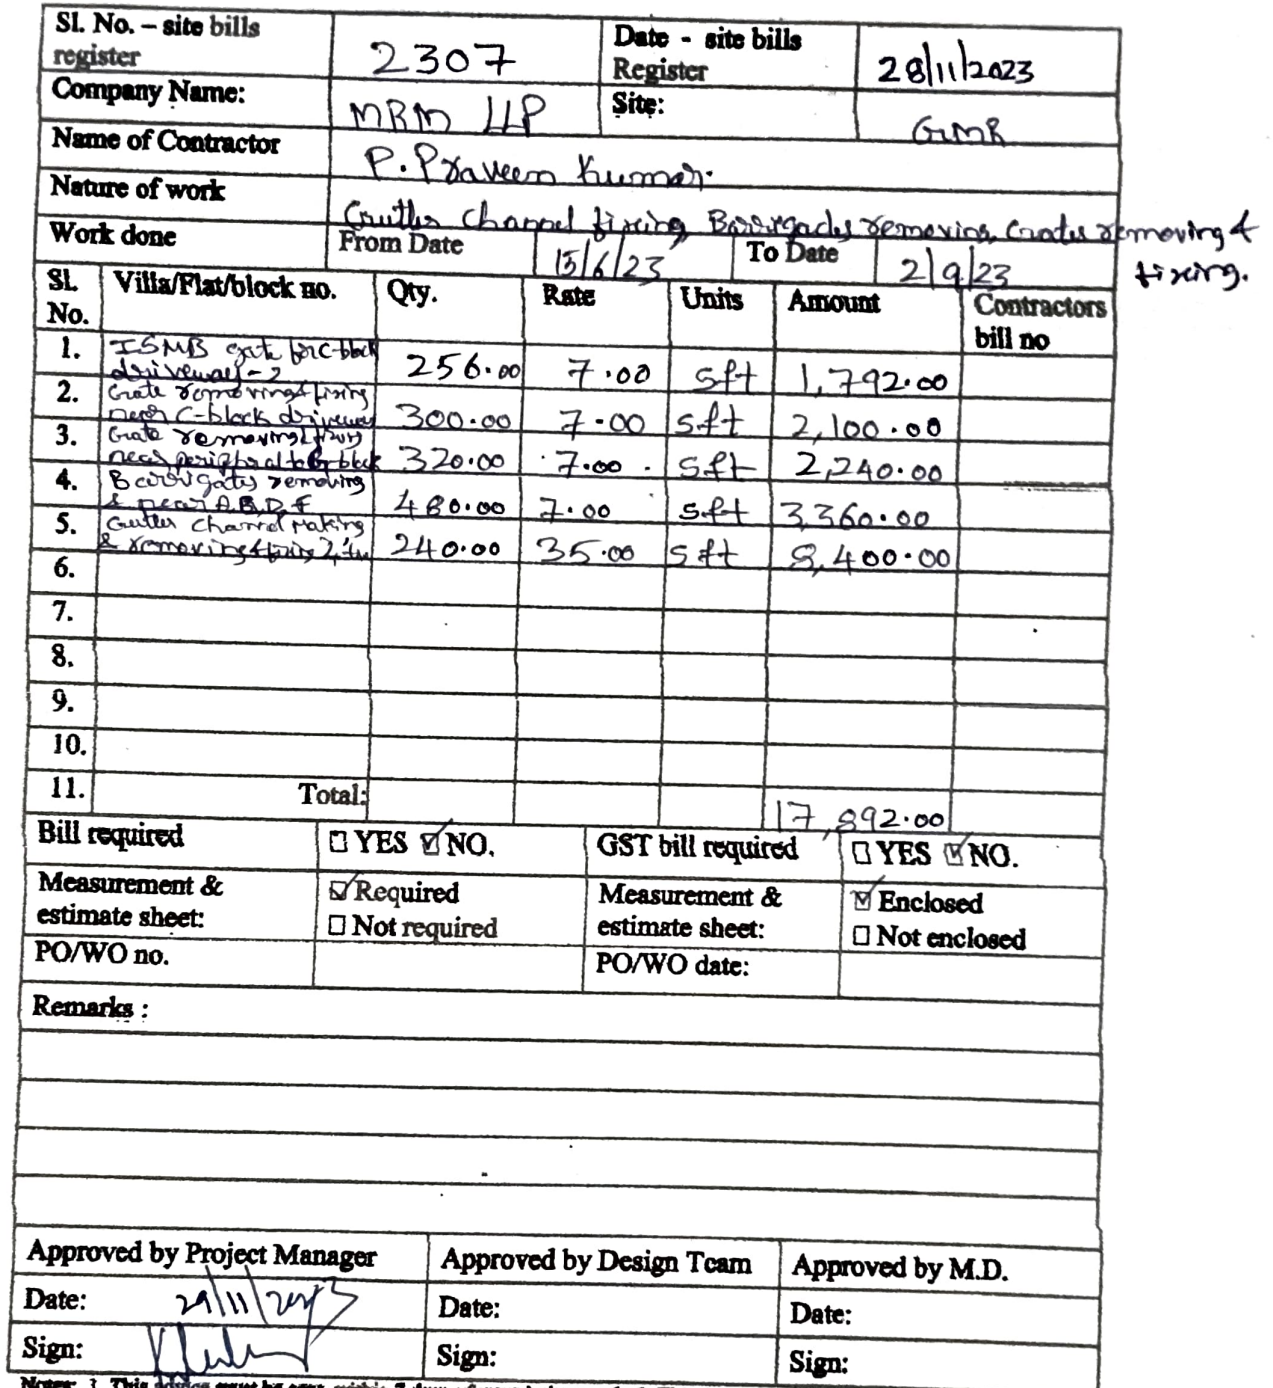 Sl. No. – site bills register 2307 Date - site bills Register 28/11/2023
Company Name: MRM LLP Site: GMR
Name of Contractor P. Praveen Kumar.
Nature of work Gutter channel fixing Barrigades removing, Grates removing & fixing.
Work done From Date 15/6/23 To Date 2/9/23
Sl. No. Villa/Flat/block no. Qty. Rate Units Amount Contractors bill no
1. ISMB gate for C-block driveway-2 256.00 7.00 sft 1,792.00
2. Grate removing & fixing near C-block driveway 300.00 7.00 sft 2,100.00
3. Grate removing & fixing near peripheral to G block 320.00 7.00 sft 2,240.00
4. Barrigates removing & near A,B,D,F 480.00 7.00 sft 3,360.00
5. Gutter channel making & removing & fixing 240.00 35.00 sft 8,400.00
6.
7.
8.
9.
10.
11. Total: 17,892.00
Bill required YES NO. GST bill required YES NO.
Measurement & estimate sheet: Required Not required Measurement & estimate sheet: Enclosed Not enclosed
PO/WO no. PO/WO date:
Remarks :
Approved by Project Manager Approved by Design Team Approved by M.D.
Date: 29/11/2023 Date: Date:
Sign: Sign: Sign: